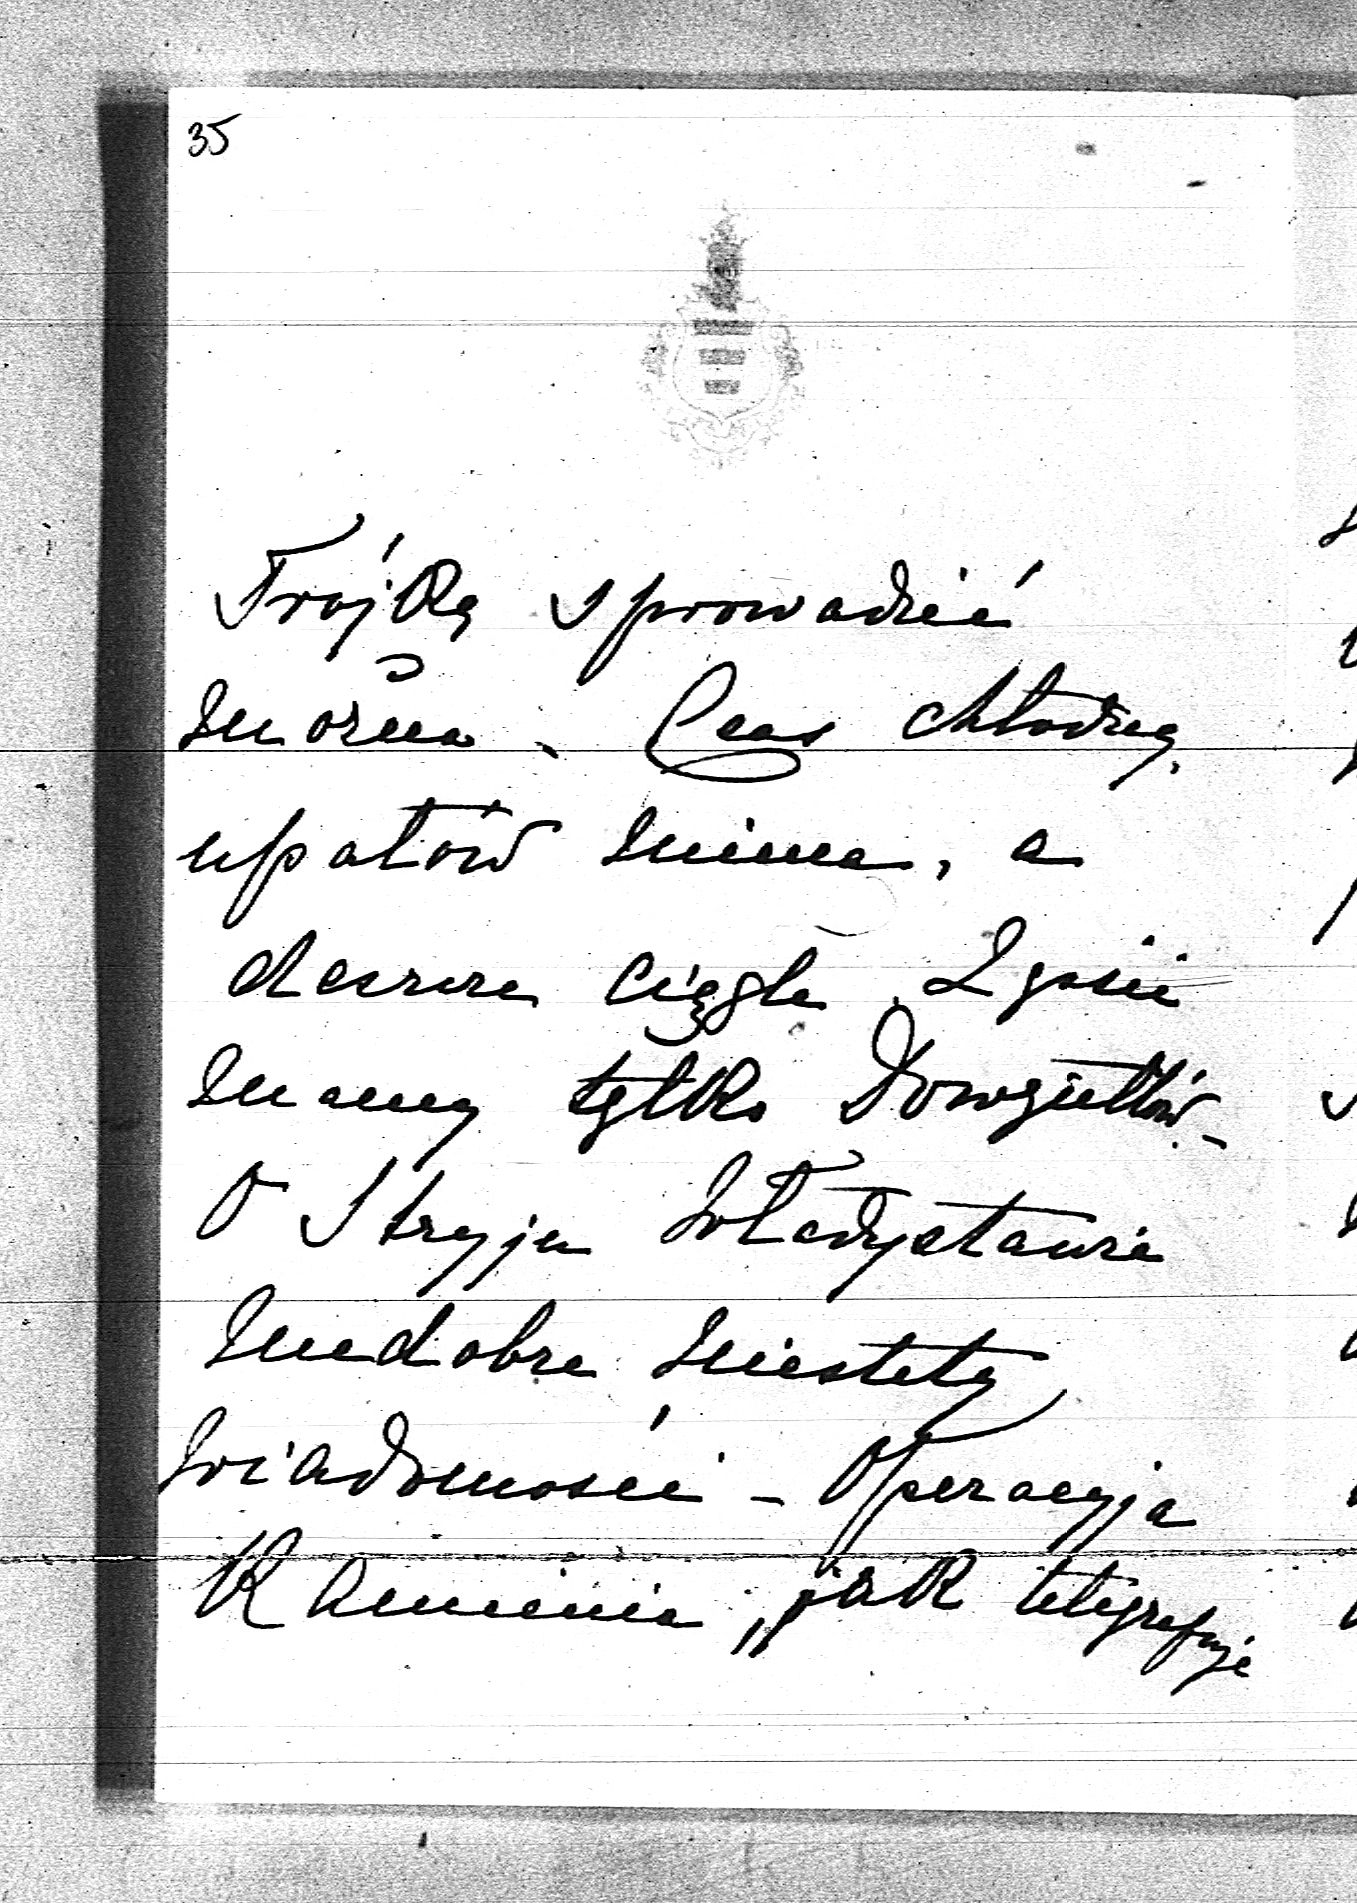 35
Trójkę sprowadzić
można. Czas chłodny,
upałów niema, a
deszcze ciągle. Z gości
mamy tylko Dowgiełłów –
O Stryju Władysławie
niedobre niestety
wiadomości – Operacyja
Kamienia „jak telegrafuje